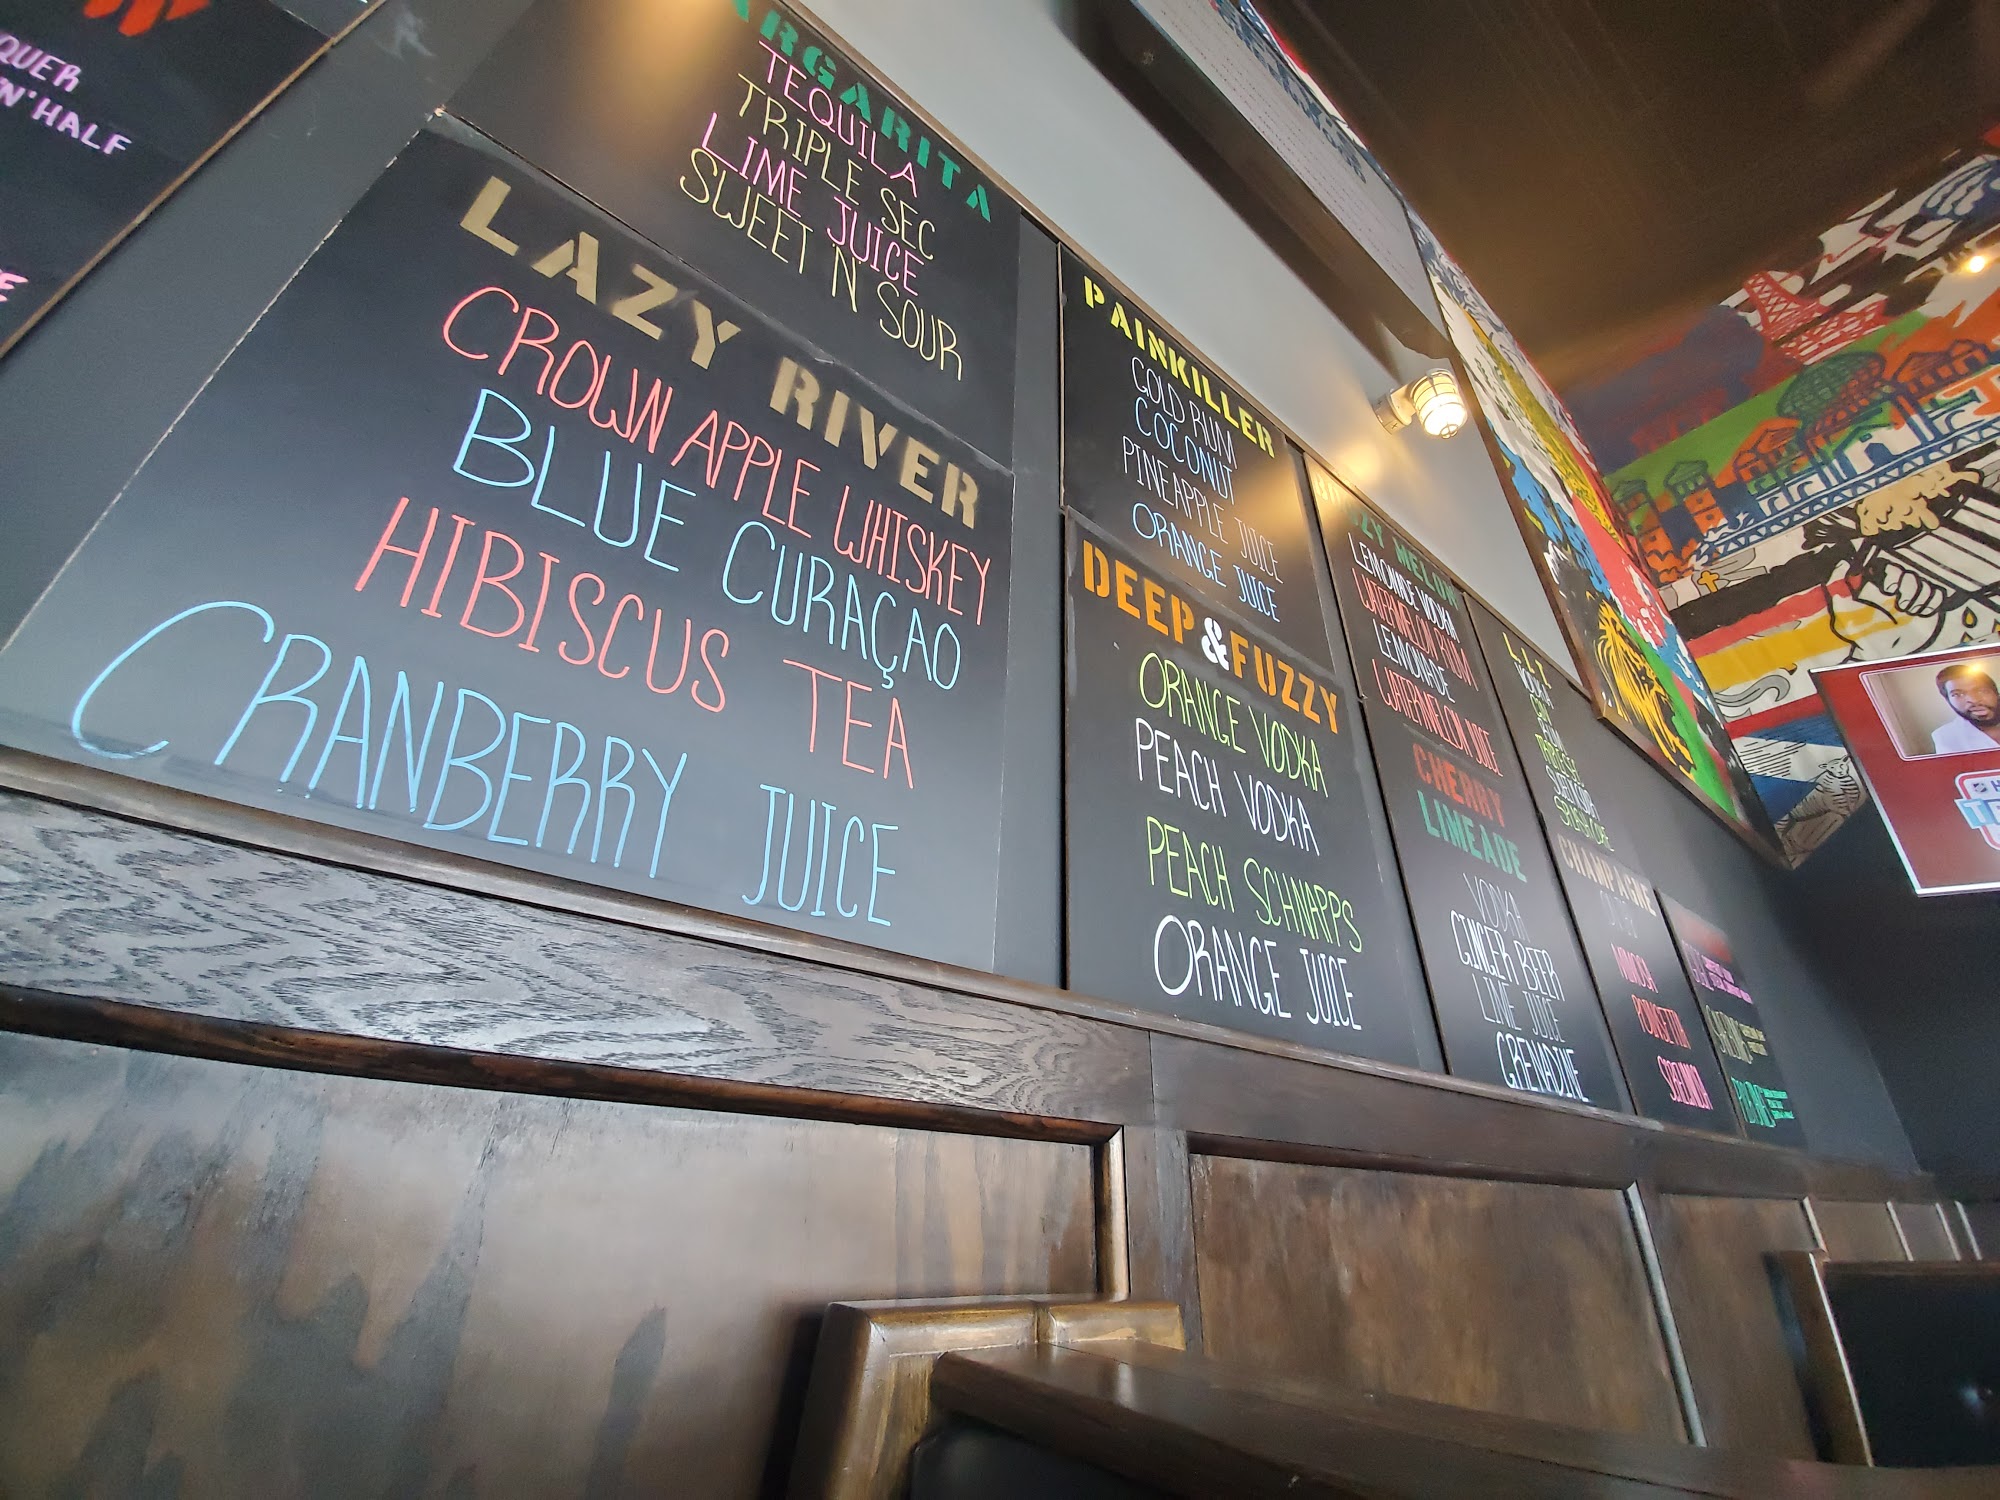 QUER
'N' HALF
ARGARITA
TEQUILA
TRIPLE SEC
LIME JUICE
SWEET N' SOUR
LAZY RIVER
CROWN APPLE WHISKEY
BLUE CURAÇAO
HIBISCUS TEA
CRANBERRY JUICE
PAINKILLER
GOLD RUM
COCONUT
PINEAPPLE JUICE
ORANGE JUICE
DEEP & FUZZY
ORANGE VODKA
PEACH VODKA
PEACH SCHNAPPS
ORANGE JUICE
ZY MELON
LEMONADE VODKA
WATERMELON RUM
LEMONADE
WATERMELON JUICE
CHERRY
LIMEADE
VODKA
GINGER BEER
LIME JUICE
GRENADINE
L.I.T
VODKA
GIN
RUM
CHAMPAGNE
MIMOSA
POINSETTIA